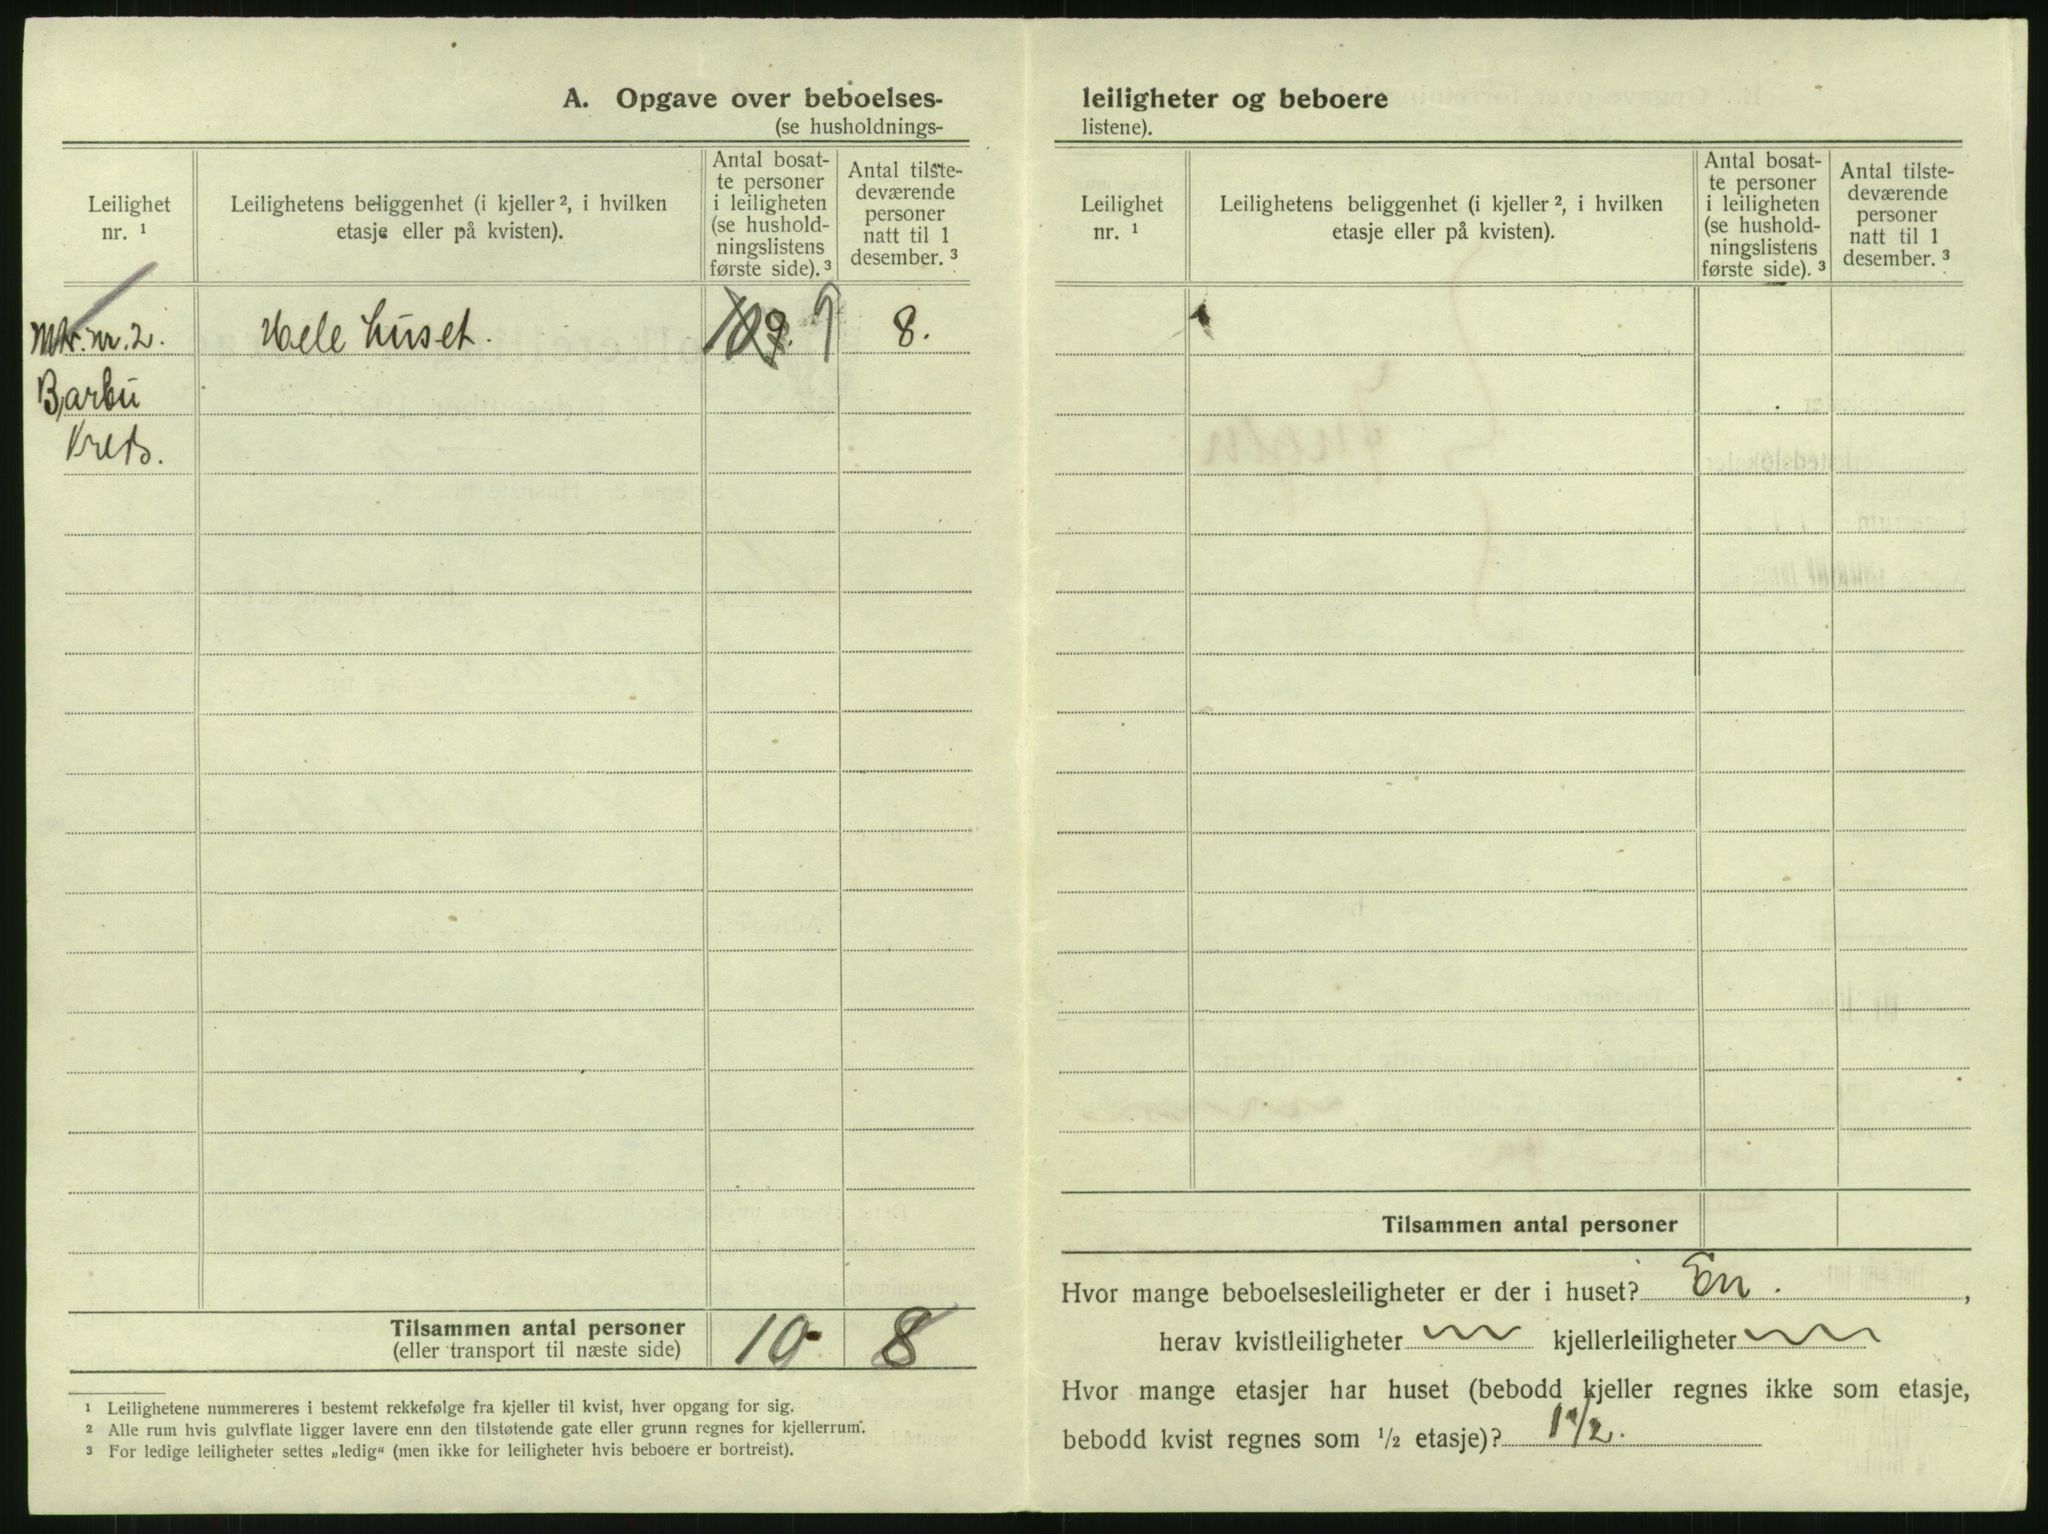 A. Opgave over beboelses-
(se husholdnings-
Leilighet
nr. ¹
Leilighetens beliggenhet (i kjeller ², i hvilken
etasje eller på kvisten).
Antal bosat-
te personer
i leiligheten
(se hushold-
ningslistens
første side). ³
Antal tilste-
deværende
personer
natt til 1
desember. ³
Mtr. nr. 2.
Hele huset.
8.
Barbu
Kreds.
Tilsammen antal personer
(eller transport til næste side)
10
8
¹ Leilighetene nummereres i bestemt rekkefølge fra kjeller til kvist, hver opgang for sig.
² Alle rum hvis gulvflate ligger lavere enn den tilstøtende gate eller grunn regnes for kjellerrum.
³ For ledige leiligheter settes „ledig“ (men ikke for leiligheter hvis beboere er bortreist).
leiligheter og beboere
listene).
Leilighet
nr. ¹
Leilighetens beliggenhet (i kjeller ², i hvilken
etasje eller på kvisten).
Antal bosat-
te personer
i leiligheten
(se hushold-
ningslistens
første side). ³
Antal tilste-
deværende
personer
natt til 1
desember. ³
Tilsammen antal personer
Hvor mange beboelsesleiligheter er der i huset? En.,
herav kvistleiligheter kjellerleiligheter
Hvor mange etasjer har huset (bebodd kjeller regnes ikke som etasje,
bebodd kvist regnes som ½ etasje)? 1 1/2.